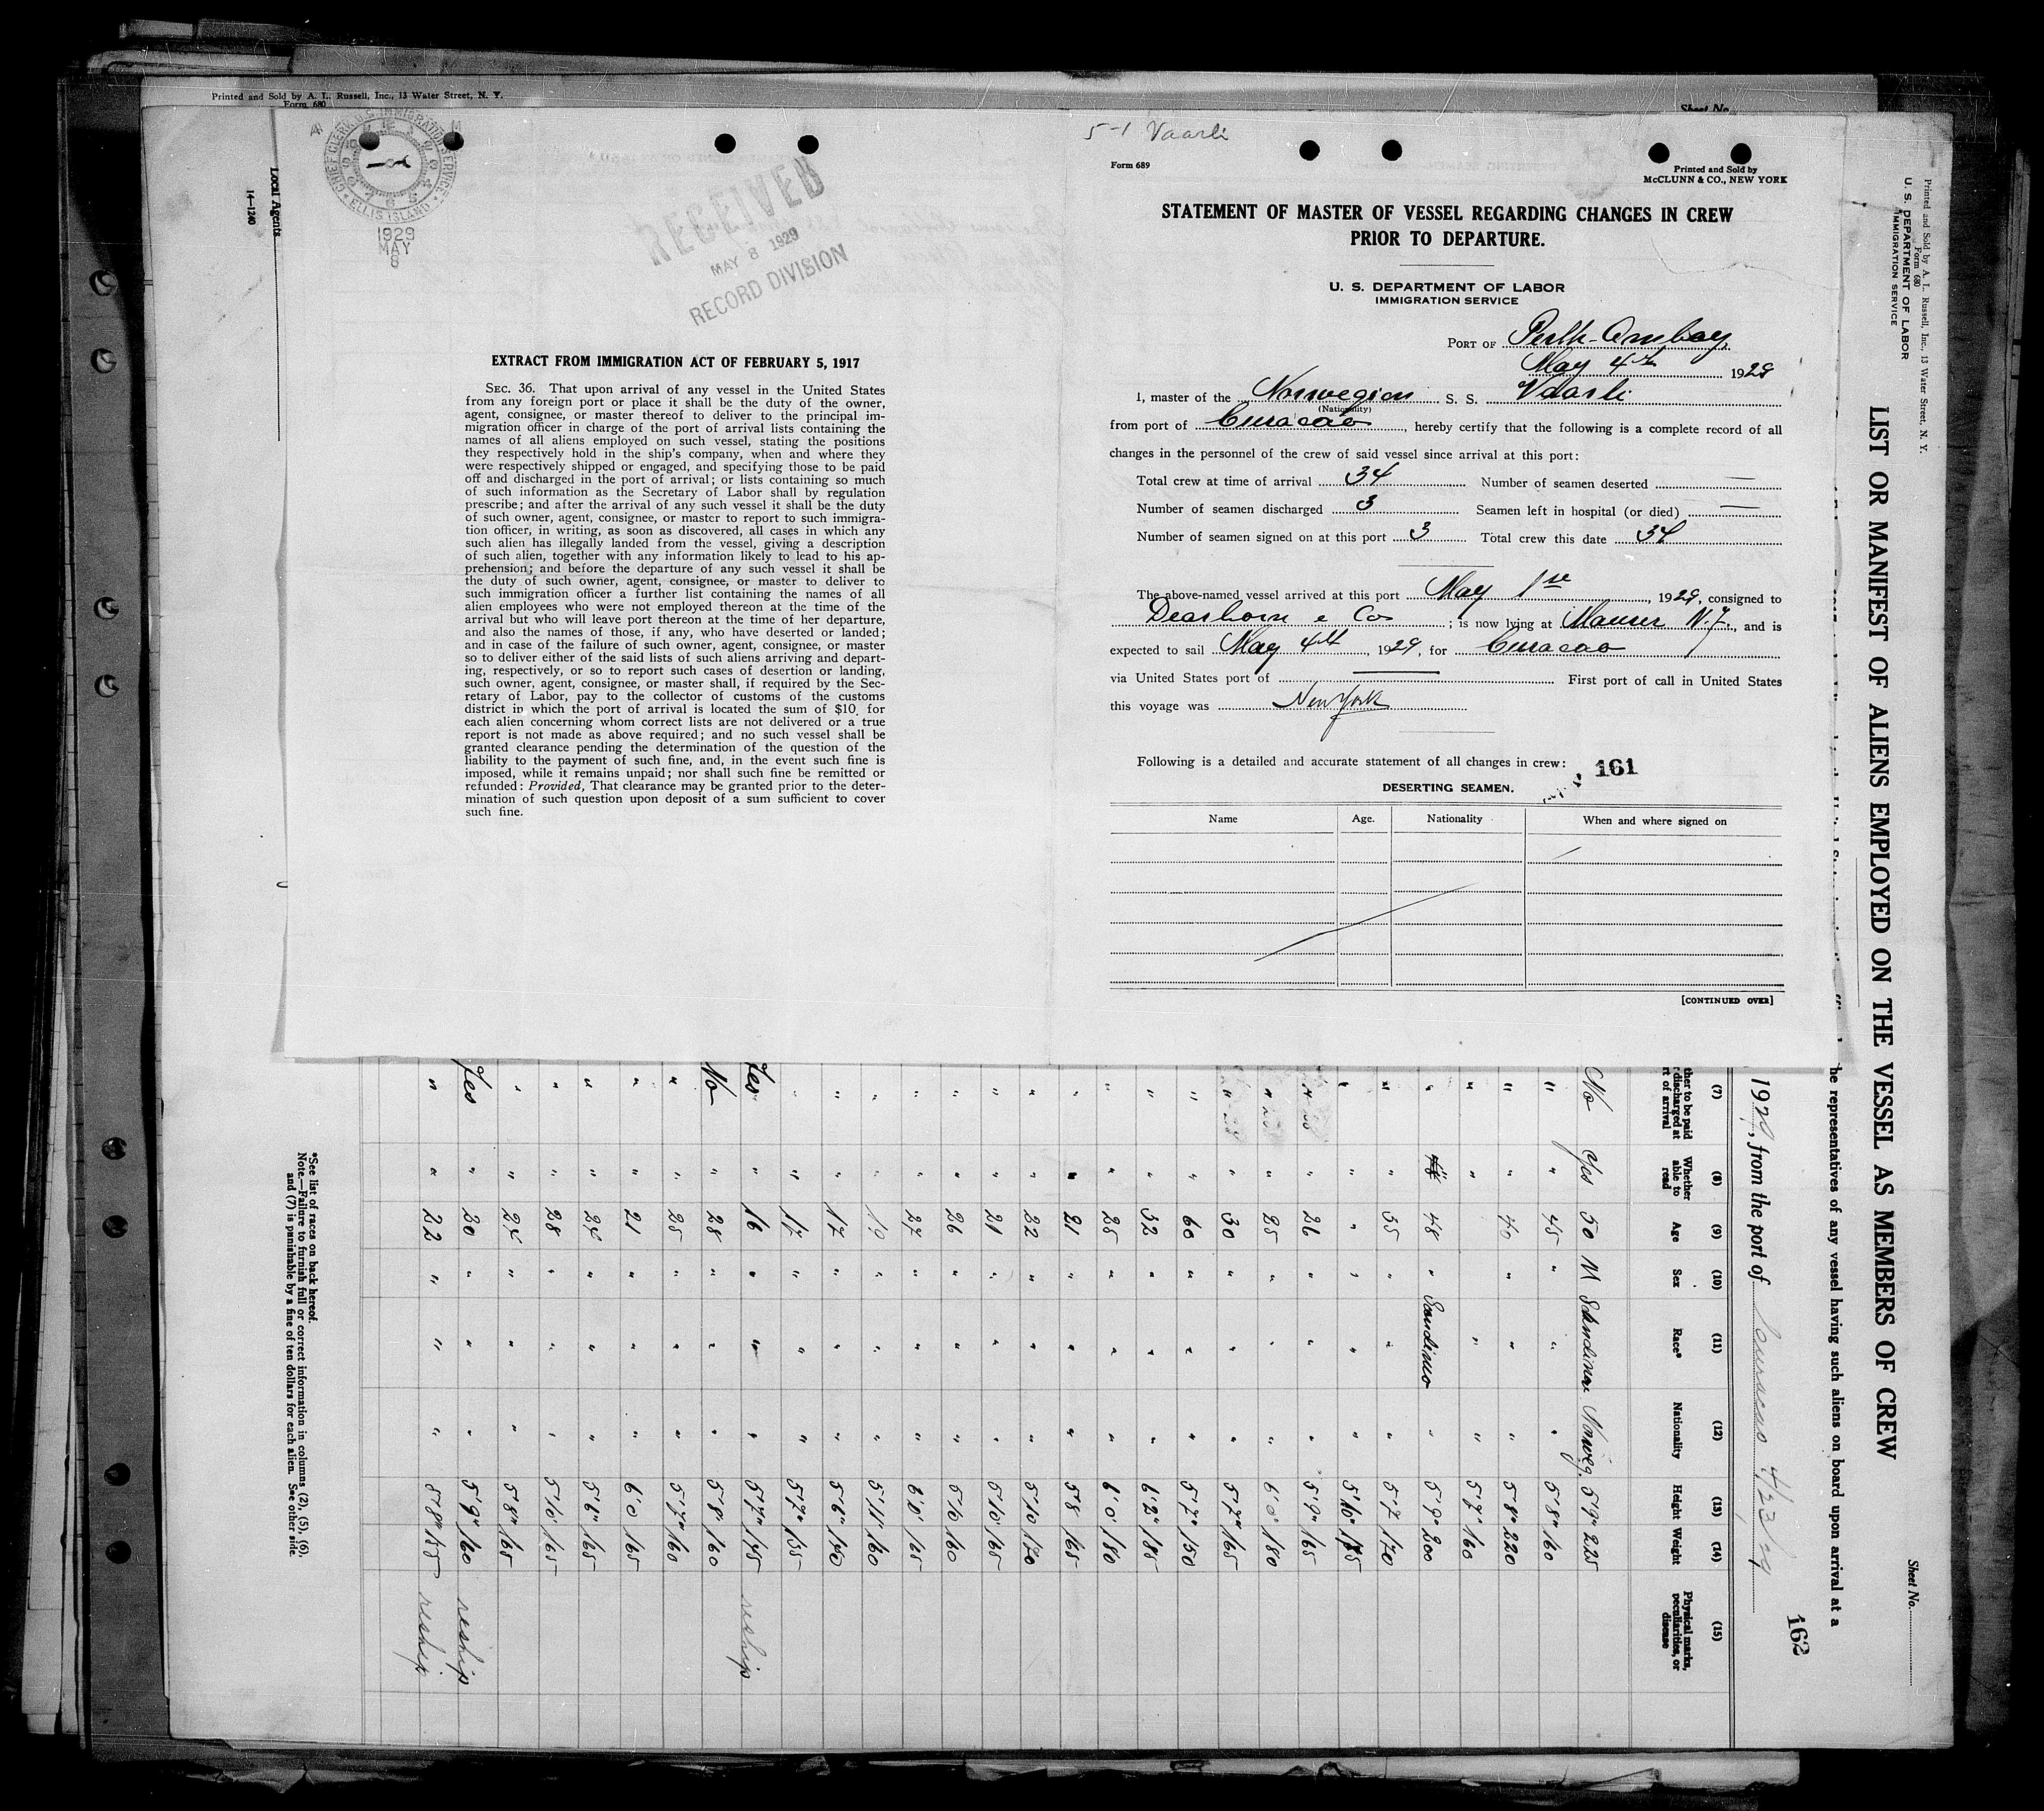 Printed and Sold by A. L. Russell, Inc., 13 Water Street, N. Y.
Form 680
Sheet No.
Local Agents
14-1240
CHIEF CLERK, U.S. IMMIGRATION SERVICE
ELLIS ISLAND
1929
MAY
8
RECEIVED
MAY 8 1929
RECORD DIVISION
EXTRACT FROM IMMIGRATION ACT OF FEBRUARY 5, 1917
SEC. 36. That upon arrival of any vessel in the United States
from any foreign port or place it shall be the duty of the owner,
agent, consignee, or master thereof to deliver to the principal im-
migration officer in charge of the port of arrival lists containing the
names of all aliens employed on such vessel, stating the positions
they respectively hold in the ship's company, when and where they
were respectively shipped or engaged, and specifying those to be paid
off and discharged in the port of arrival; or lists containing so much
of such information as the Secretary of Labor shall by regulation
prescribe; and after the arrival of any such vessel it shall be the duty
of such owner, agent, consignee, or master to report to such immigra-
tion officer, in writing, as soon as discovered, all cases in which any
such alien has illegally landed from the vessel, giving a description
of such alien, together with any information likely to lead to his ap-
prehension; and before the departure of any such vessel it shall be
the duty of such owner, agent, consignee, or master to deliver to
such immigration officer a further list containing the names of all
alien employees who were not employed thereon at the time of the
arrival but who will leave port thereon at the time of her departure,
and also the names of those, if any, who have deserted or landed;
and in case of the failure of such owner, agent, consignee, or master
so to deliver either of the said lists of such aliens arriving and depart-
ing, respectively, or so to report such cases of desertion or landing,
such owner, agent, consignee, or master shall, if required by the Sec-
retary of Labor, pay to the collector of customs of the customs
district in which the port of arrival is located the sum of $10 for
each alien concerning whom correct lists are not delivered or a true
report is not made as above required; and no such vessel shall be
granted clearance pending the determination of the question of the
liability to the payment of such fine, and, in the event such fine is
imposed, while it remains unpaid; nor shall such fine be remitted or
refunded: Provided, That clearance may be granted prior to the deter-
mination of such question upon deposit of a sum sufficient to cover
such fine.
5-1 Vaarli
Form 689
Printed and Sold by
McCLUNN & CO., NEW YORK
STATEMENT OF MASTER OF VESSEL REGARDING CHANGES IN CREW
PRIOR TO DEPARTURE.
U. S. DEPARTMENT OF LABOR
IMMIGRATION SERVICE
PORT OF Perth-Amboy,
May 4th 1929
I, master of the Norwegian S. S. Vaarli
(Nationality)
from port of Curacao, hereby certify that the following is a complete record of all
changes in the personnel of the crew of said vessel since arrival at this port:
Total crew at time of arrival 34 Number of seamen deserted —
Number of seamen discharged 3 Seamen left in hospital (or died) —
Number of seamen signed on at this port 3 Total crew this date 34
The above-named vessel arrived at this port May 1st, 1929, consigned to
Dearborn & Co; is now lying at Maurer N.J., and is
expected to sail May 4th, 1929, for Curacao
via United States port of — First port of call in United States
this voyage was New York
Following is a detailed and accurate statement of all changes in crew:
161
DESERTING SEAMEN.
Name Age. Nationality When and where signed on
[CONTINUED OVER]
Printed and Sold by A. L. Russell, Inc., 13 Water Street, N. Y.
Form 680
U. S. DEPARTMENT OF LABOR
IMMIGRATION SERVICE
Sheet No.
LIST OR MANIFEST OF ALIENS EMPLOYED ON THE VESSEL AS MEMBERS OF CREW
he representatives of any vessel having such aliens on board upon arrival at a
162
1929, from the port of Curacao 4/23/29
(7) (8) (9) (10) (11) (12) (13) (14) (15)
ther to be paid
discharged at
rt of arrival
Whether
able to
read
Age
Sex
Race*
Nationality
Height
Weight
Physical marks,
peculiarities, or
disease
No Yes 50 M Scandinav Norweg. 5'9" 225
" " 45 " " " 5'8" 160
" " 40 " " " 5'8" 220
" " " " 5'7" 160
" 48 " Scandinav " 5'9" 200
" " 35 " " " 5'7 170
" " " " " " 5'10" 175
" " 26 " " " 5'9" 165
" " 25 " " " 6'0" 180
" " 30 " " " 5'7" 165
" " 60 " " " 5'7" 150
" " 32 " " " 6'2" 185
" " 25 " " " 6'0 180
" " 21 " " " 5'8 165
" " 22 " " " 5'10 170
" " 21 " " " 5'10" 165
" " 26 " " " 5'10 160
" " 27 " " " 6'0" 165
" " 19 " " " 5'11" 160
" " 17 " " " 5'6" 140
" " 17 " " " 5'7" 155
Yes " 16 " " " 5'7" 145 reship
No " 28 " " " 5'8" 160
" " 25 " " " 5'7" 160
" " 21 " " " 6'0 165
" " 24 " " " 5'6" 165
" " 28 " " " 5'10" 165
" " 24 " " " 5'8" 165
Yes " 20 " " " 5'9" 160 reship
" " 22 " " " 5'8" 155 reship
*See list of races on back hereof.
Note.—Failure to furnish full or correct information in columns (2), (5), (6),
and (7) is punishable by a fine of ten dollars for each alien. See other side.